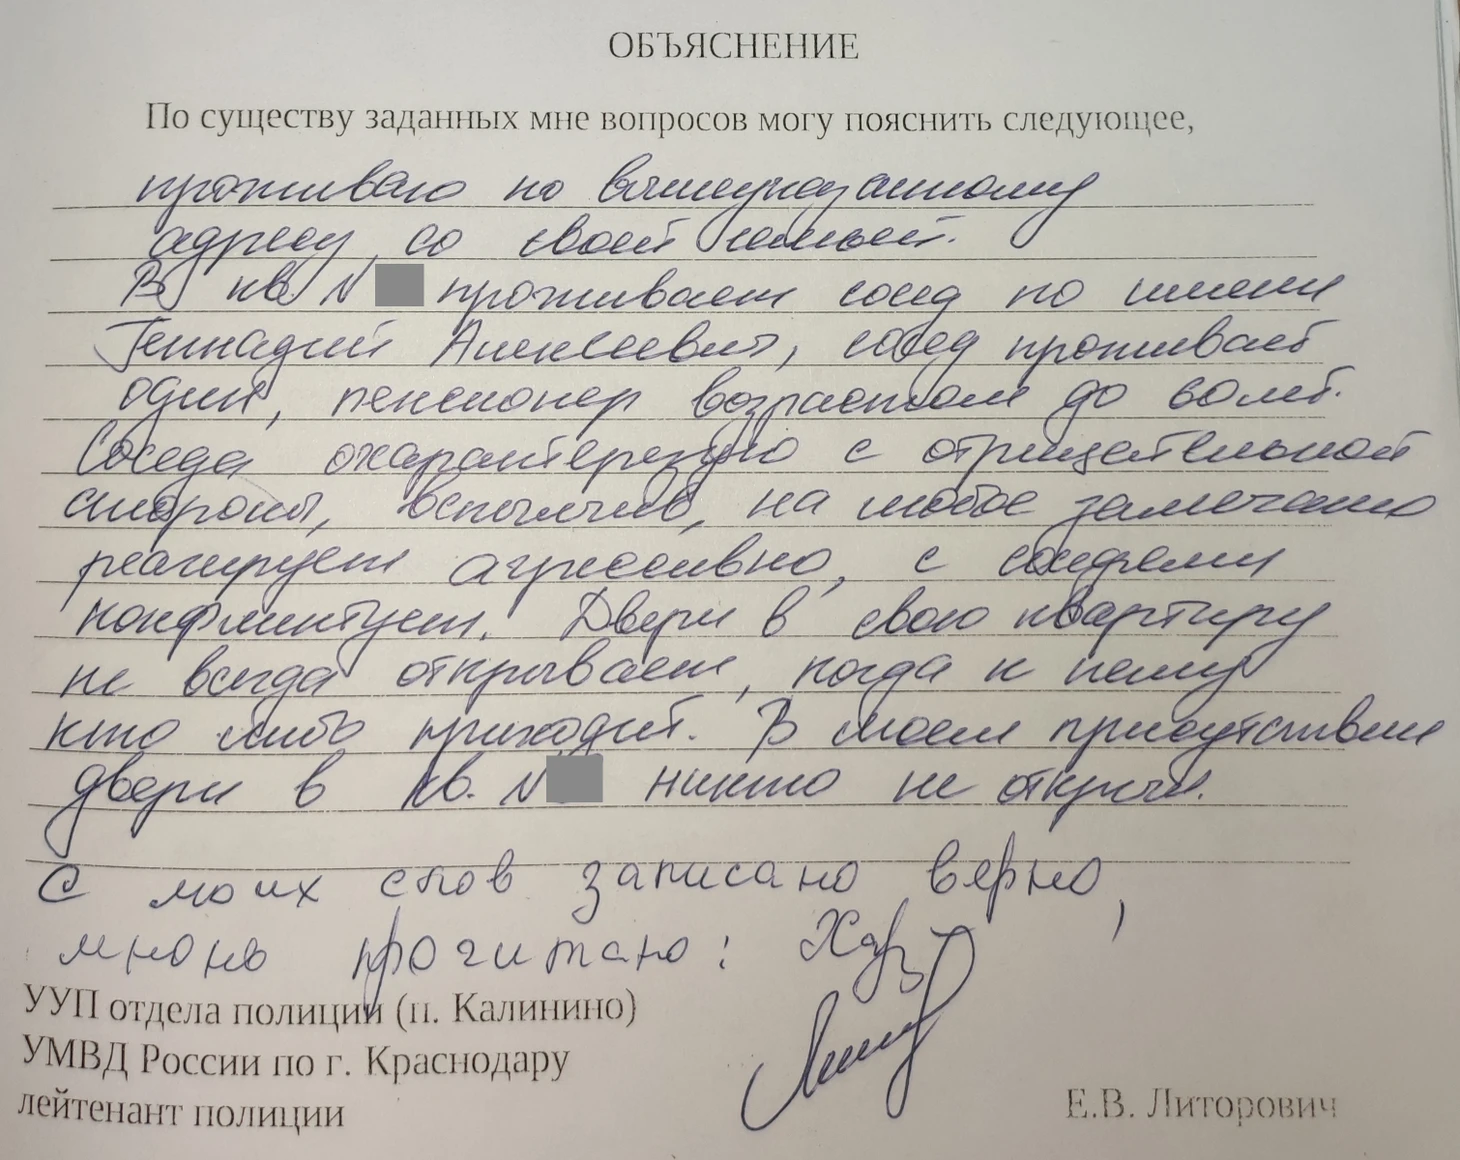 ОБЪЯСНЕНИЕ
По существу заданных мне вопросов могу пояснить следующее,
проживаю по вышеуказанному
адресу со своей семьей.
В кв. N проживает сосед по имени
Геннадий Алексеевич, сосед проживает
один, пенсионер возрастом до 60 лет.
Соседа охарактерезую с отрицательной
стороны, вспыльчив, на любое замечание
реагирует агрессивно, с соседями
конфликтует. Двери в свою квартиру
не всегда открывает, когда к нему
кто либо приходит. В моем присутствии
двери в кв. N никто не открыл.
С моих слов записано верно,
мною прочитано:
УУП отдела полиции (п. Калинино)
УМВД России по г. Краснодару
лейтенант полиции
Е.В. Литорович